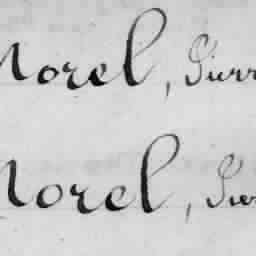 Morel, Pierr
Morel, Pier